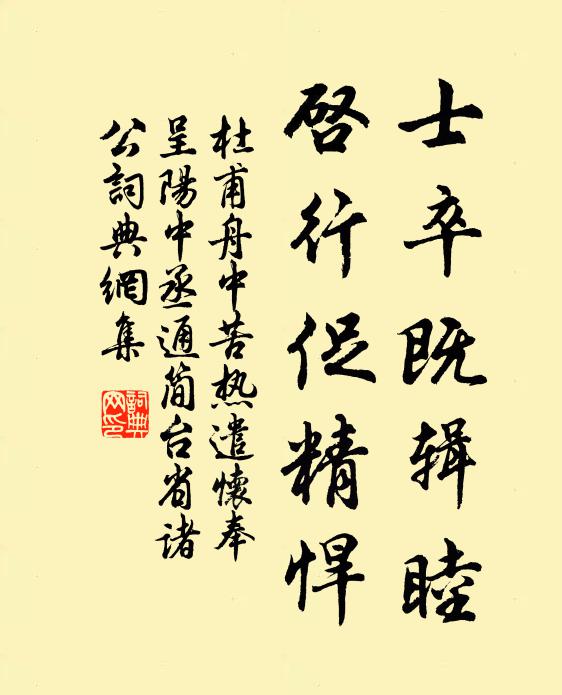 士卒既辑睦
啓行促精悍
杜甫舟中苦热遣懷奉
呈陽中丞通简台省诸
公詞典網集
詞典
网印